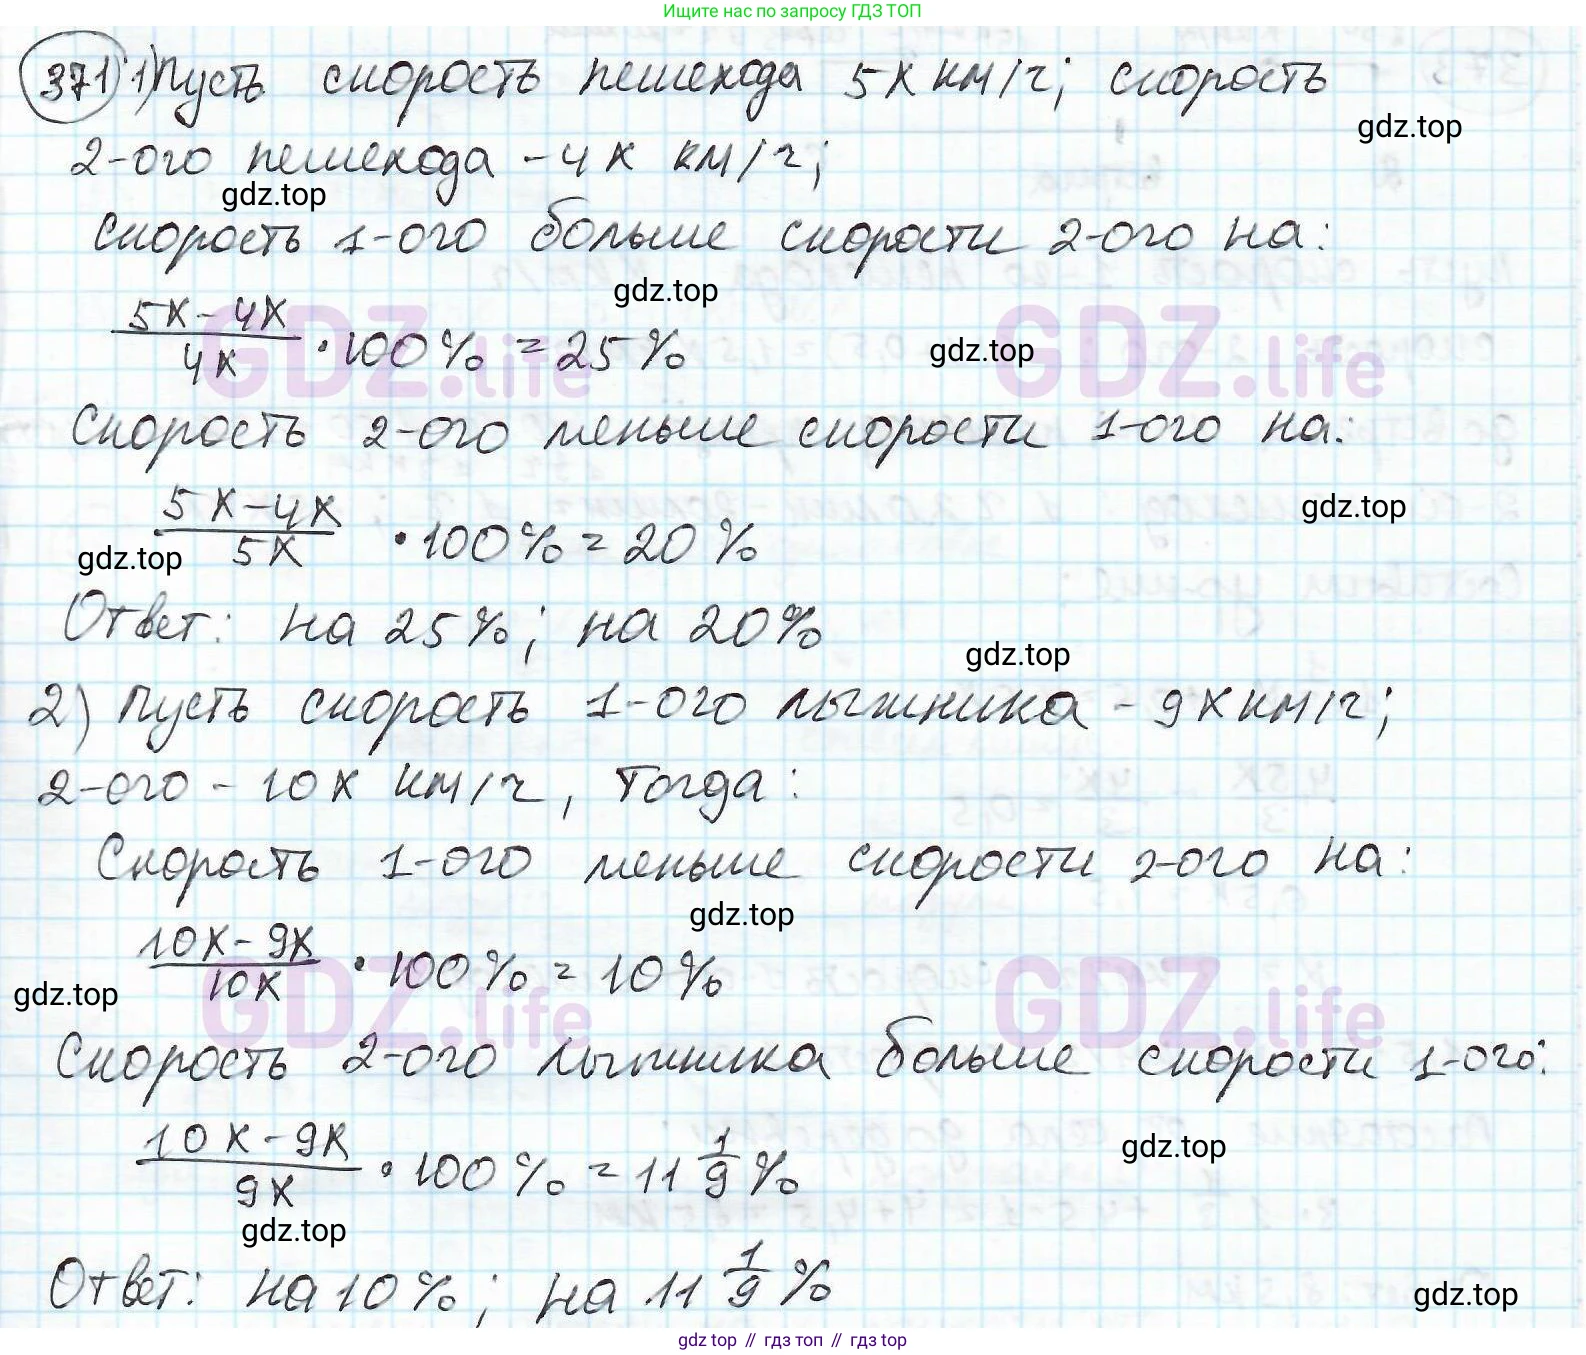 Ищите нас по запросу ГДЗ ТОП
371 1) Пусть скорость пешехода 5х км/ч; скорость
gdz.top
2-ого пешехода - 4х км/ч;
gdz.top
Скорость 1-ого больше скорости 2-ого на:
gdz.top
5х - 4х / 4х · 100% = 25%
gdz.top
GDZ.life GDZ.life
Скорость 2-ого меньше скорости 1-ого на:
5х - 4х / 5х · 100% = 20%
gdz.top
gdz.top
Ответ: на 25%; на 20%
gdz.top
2) Пусть скорость 1-ого лыжника - 9х км/ч;
2-ого - 10х км/ч, тогда:
Скорость 1-ого меньше скорости 2-ого на:
gdz.top
10х - 9х / 10х · 100% = 10%
gdz.top
GDZ.life GDZ.life
Скорость 2-ого лыжника больше скорости 1-ого:
10х - 9х / 9х · 100% = 11 1/9 %
gdz.top
gdz.top
Ответ: на 10%; на 11 1/9 %
gdz.top
gdz top // гдз топ // гдз top